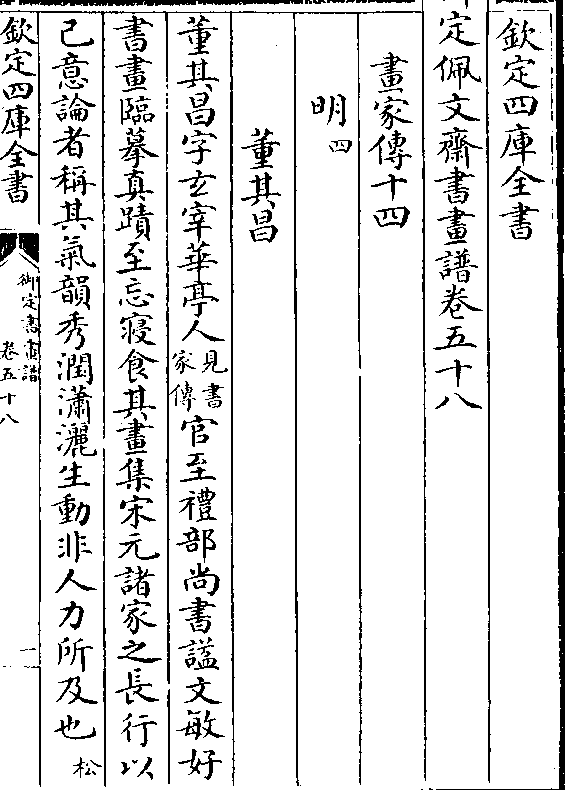 欽定四庫全書
定佩文齋書畫譜卷五十八
畫家傳十四
明四
董其昌
董其昌字玄宰華亭人見書家傳官至禮部尚書諡文敏好
書畫臨摹真蹟至忘寢食其畫集宋元諸家之長行以
己意論者稱其氣韻秀潤瀟灑生動非人力所及也松
欽定四庫全書
御定書畫譜
卷五十八
一